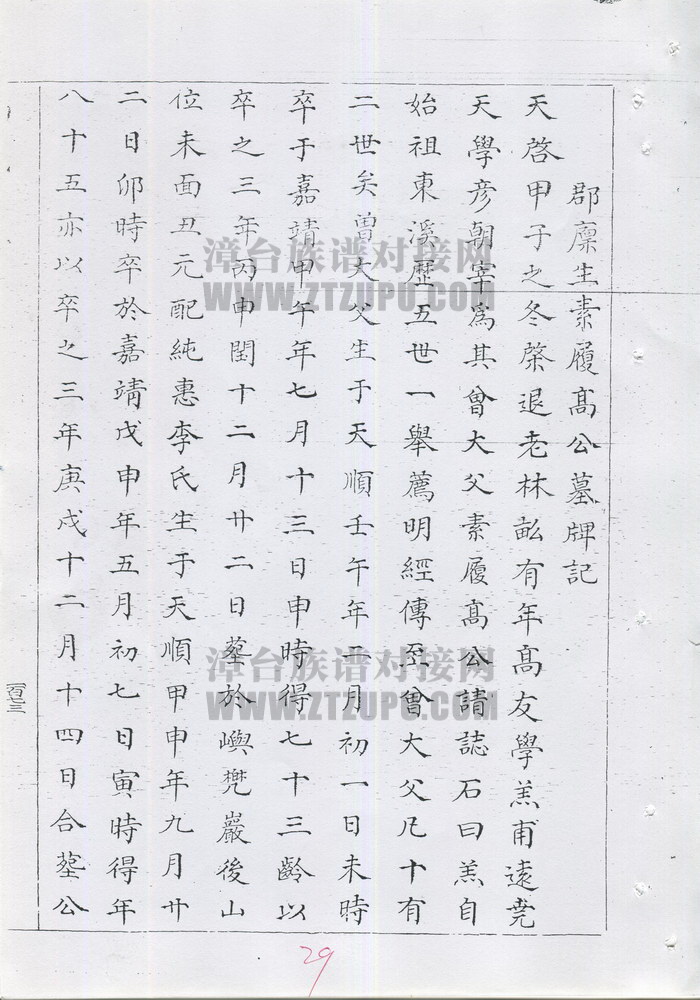 郡廩生素履髙公墓牌記
天啓甲子之冬棨退老林畝有年髙友學羔甫遠凳
天學彦朝宰為其曾大父素履髙公請誌石曰羔自
始祖東溪歷五世一舉薦明經傳至曾大父凡十有
二世矣曾大父生于天順壬午年二月初一日未時
卒于嘉靖甲午年七月十三日申時得七十三齡以
卒之三年丙申閏十二月廿二日塟於嶼兠巖後山
位未面丑元配純惠李氏生于天順甲申年九月廿
二日卯時卒於嘉靖戊申年五月初七日寅時得年
八十五亦以卒之三年庚戌十二月十四日合塟公
一百七三
29
漳台族谱对接网
WWW.ZTZUPU.COM
漳台族谱对接网
WWW.ZTZUPU.COM